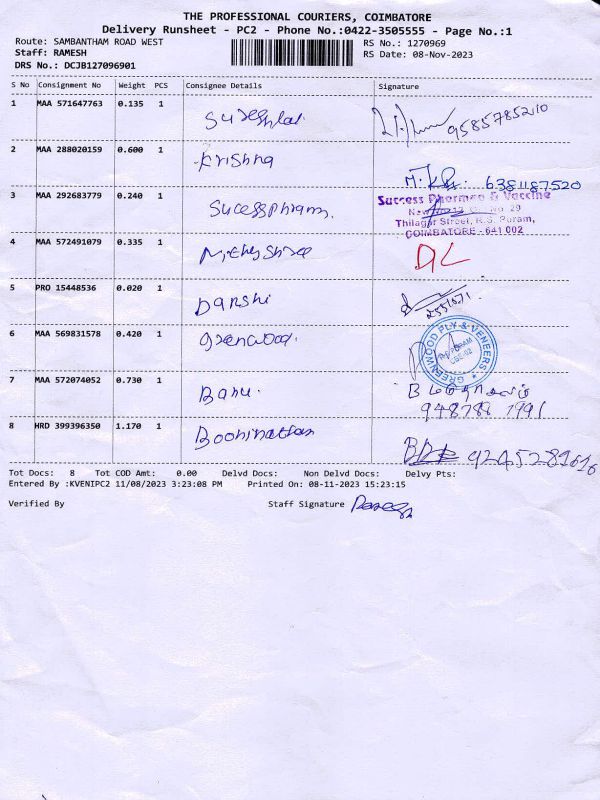 THE PROFESSIONAL COURIERS, COIMBATORE
Delivery Runsheet - PC2 - Phone No.:0422-3505555 - Page No.:1
Route: SAMBANTHAM ROAD WEST
RS No.: 1270969
Staff: RAMESH
RS Date: 08-Nov-2023
DRS No.: DCJB127096901
S No Consignment No Weight PCS Consignee Details Signature
1 MAA 571647763 0.135 1 9585785210
2 MAA 288020159 0.600 1 Krishna 6381187520
3 MAA 292683779 0.240 1 Sucessphrams
Success Pharmaa & Vaccine
Thilagar Street, R.S. Puram,
COIMBATORE - 641 002
4 MAA 572491079 0.335 1
5 PRO 15448536 0.020 1 Darshi
6 MAA 569831578 0.420 1 greenwood
GREENWOOD PLY & VENEERS
7 MAA 572074052 0.730 1 Banu
8 HRD 399396350 1.170 1 Boominathan
Tot Docs: 8 Tot COD Amt: 0.00 Delvd Docs: Non Delvd Docs: Delvy Pts:
Entered By :KVENIPC2 11/08/2023 3:23:08 PM Printed On: 08-11-2023 15:23:15
Verified By Staff Signature